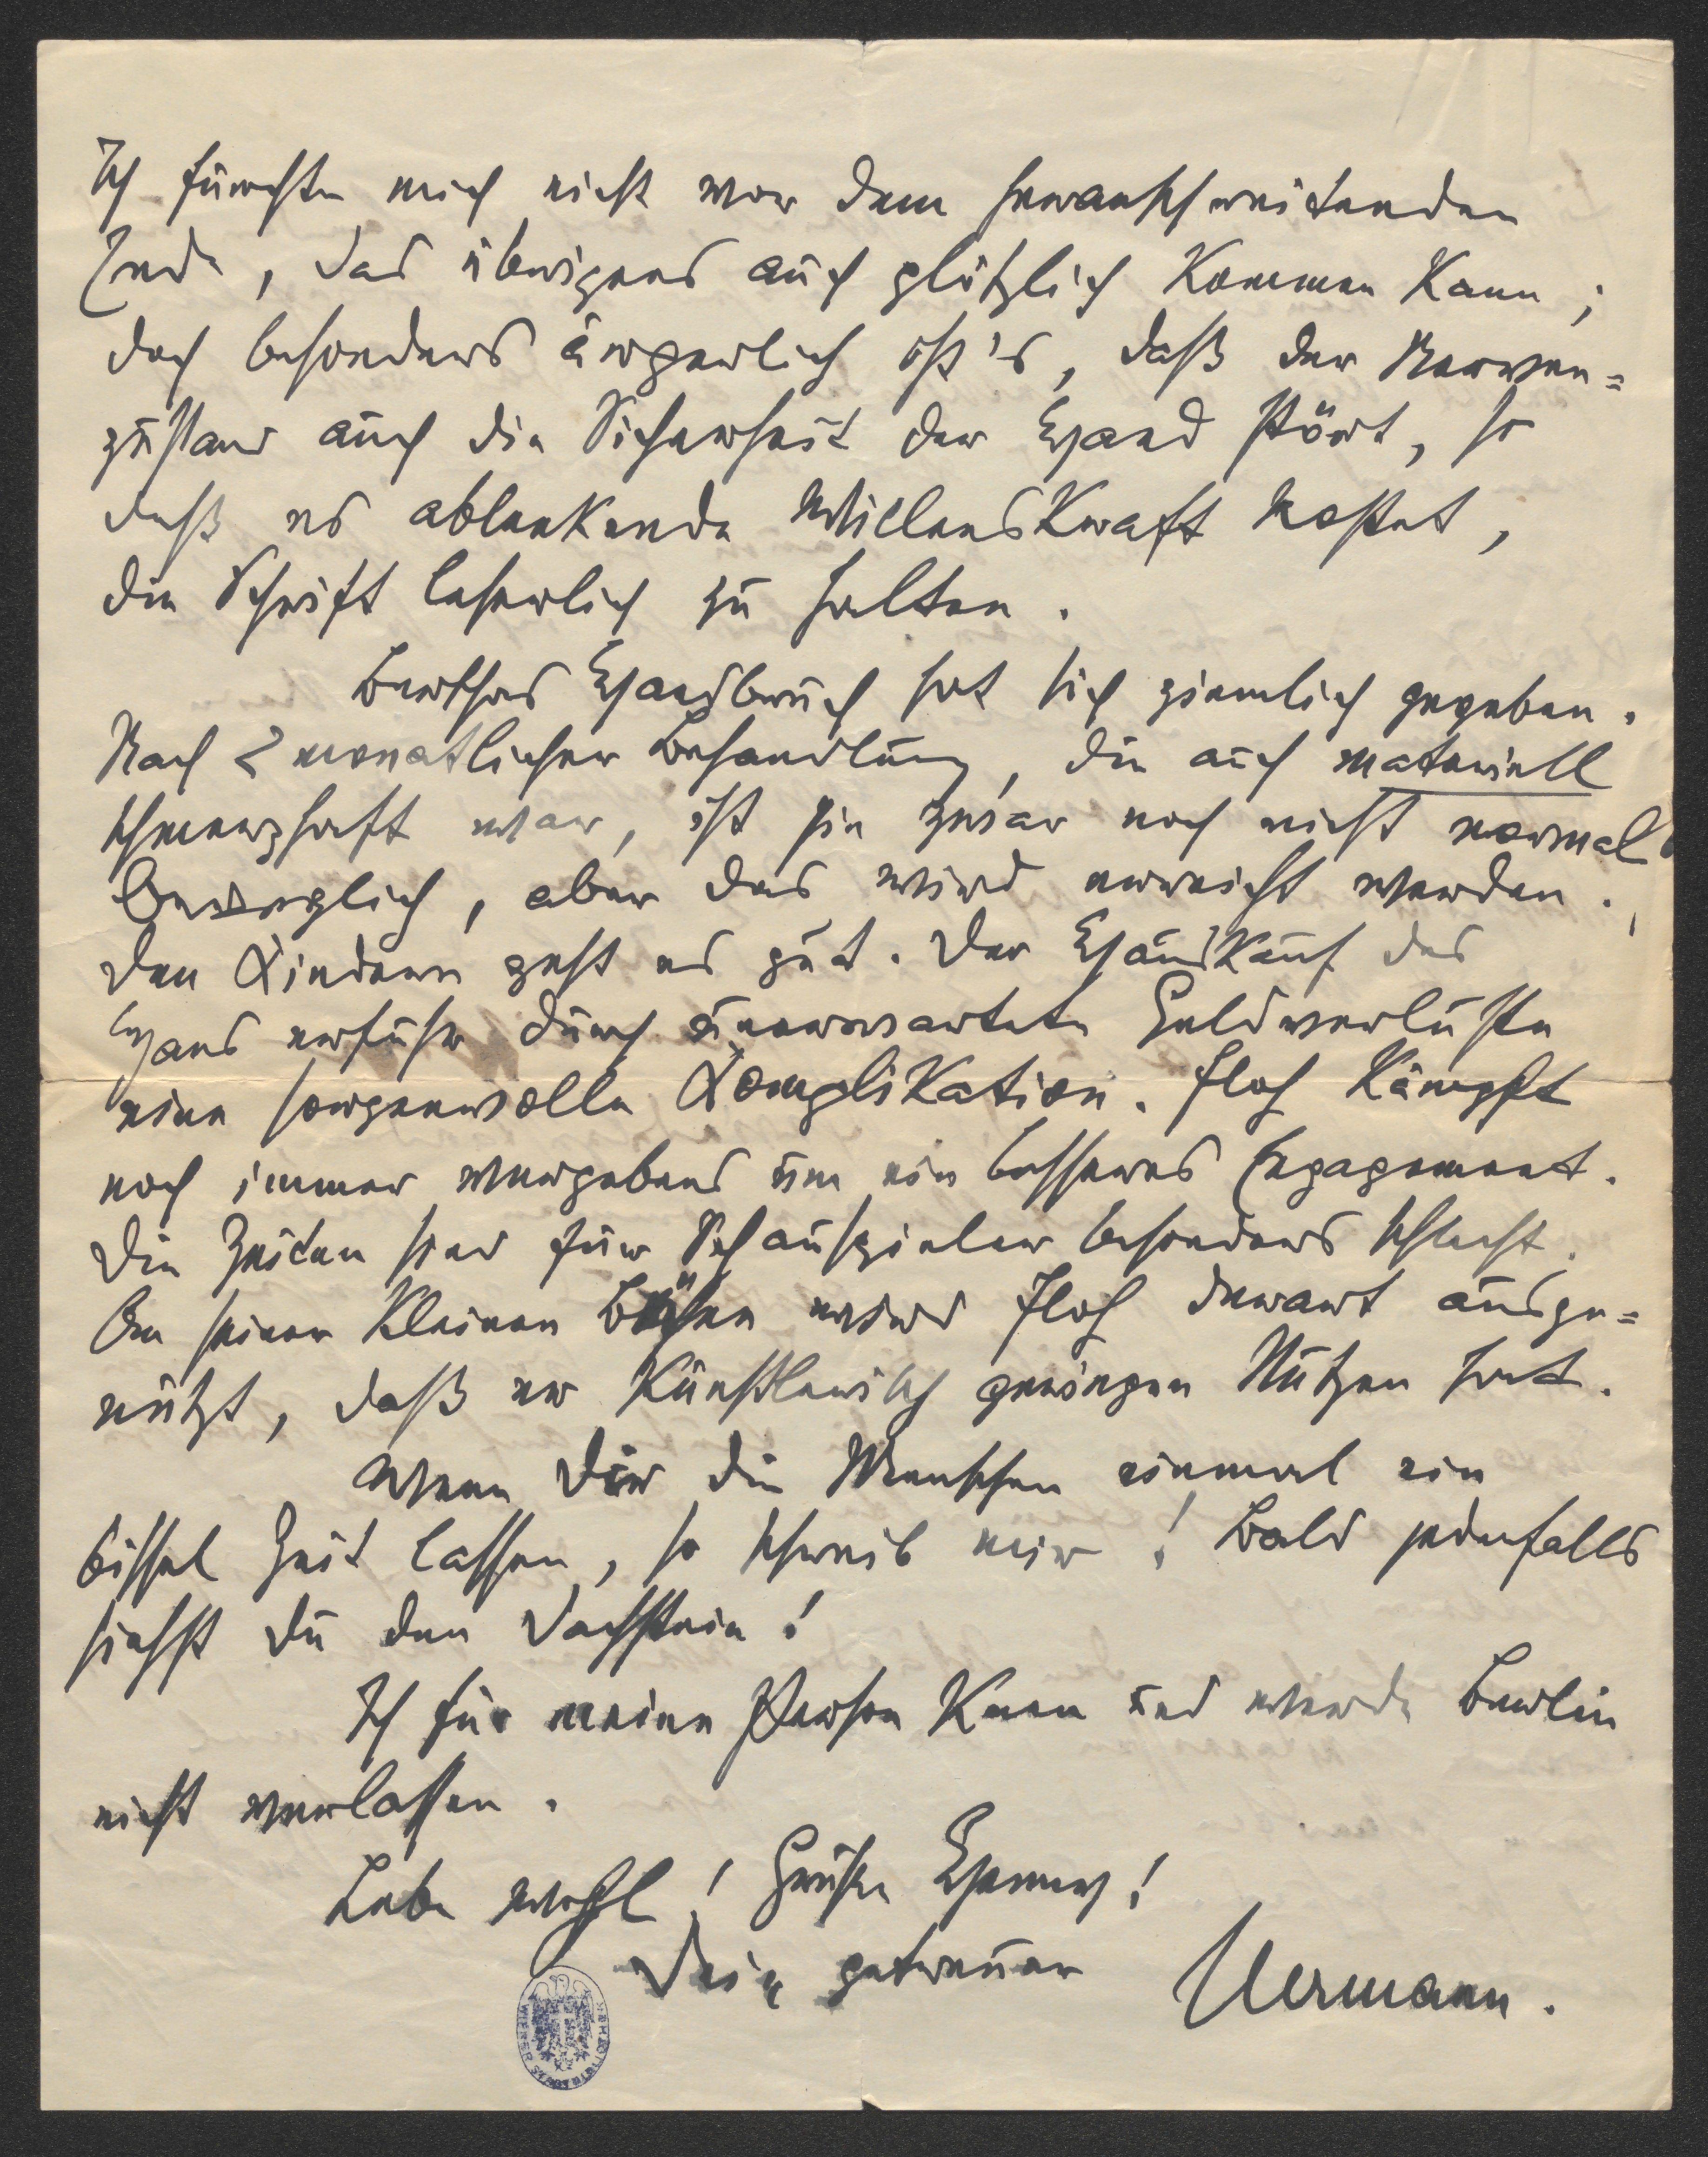 Ich fürchte mich nicht vor dem heranschreitenden
Ende, das übrigens auch plötzlich kommen kann;
doch besonders ärgerlich ist's, daß der Nerven=
zustand auch die Sicherheit der Hand stört, so
daß es ablenkende Willenskraft kostet,
die Schrift leserlich zu halten.
Berthas Handbruch hat sich ziemlich gegeben.
Nach 2 monatlicher Behandlung, die auch materiell
schmerzhaft war, ist sie zwar noch nicht normal
beweglich, aber das wird erreicht werden.
Den Kindern geht es gut. Der Hauskauf des
Hans erfuhr durch unerwartete Geldverluste
eine sorgenvolle Komplikation. Floh kämpft
noch immer vergebens um ein besseres Engagement.
Die Zeiten sind für Schauspieler besonders schlecht.
An seiner kleinen Bühne wird Floh derart ausge=
nützt, daß er künstlerisch geringen Nutzen hat.
Wenn Dir die Menschen einmal ein
bissel Zeit lassen, so schreib mir! Bald jedenfalls
siehst Du den Dachstein!
Ich für meine Person kann und werde Berlin
nicht verlassen.
Lebe wohl! Grüße
Dein getreuer Hermann.
WIENER STADTBIBLIOTHEK